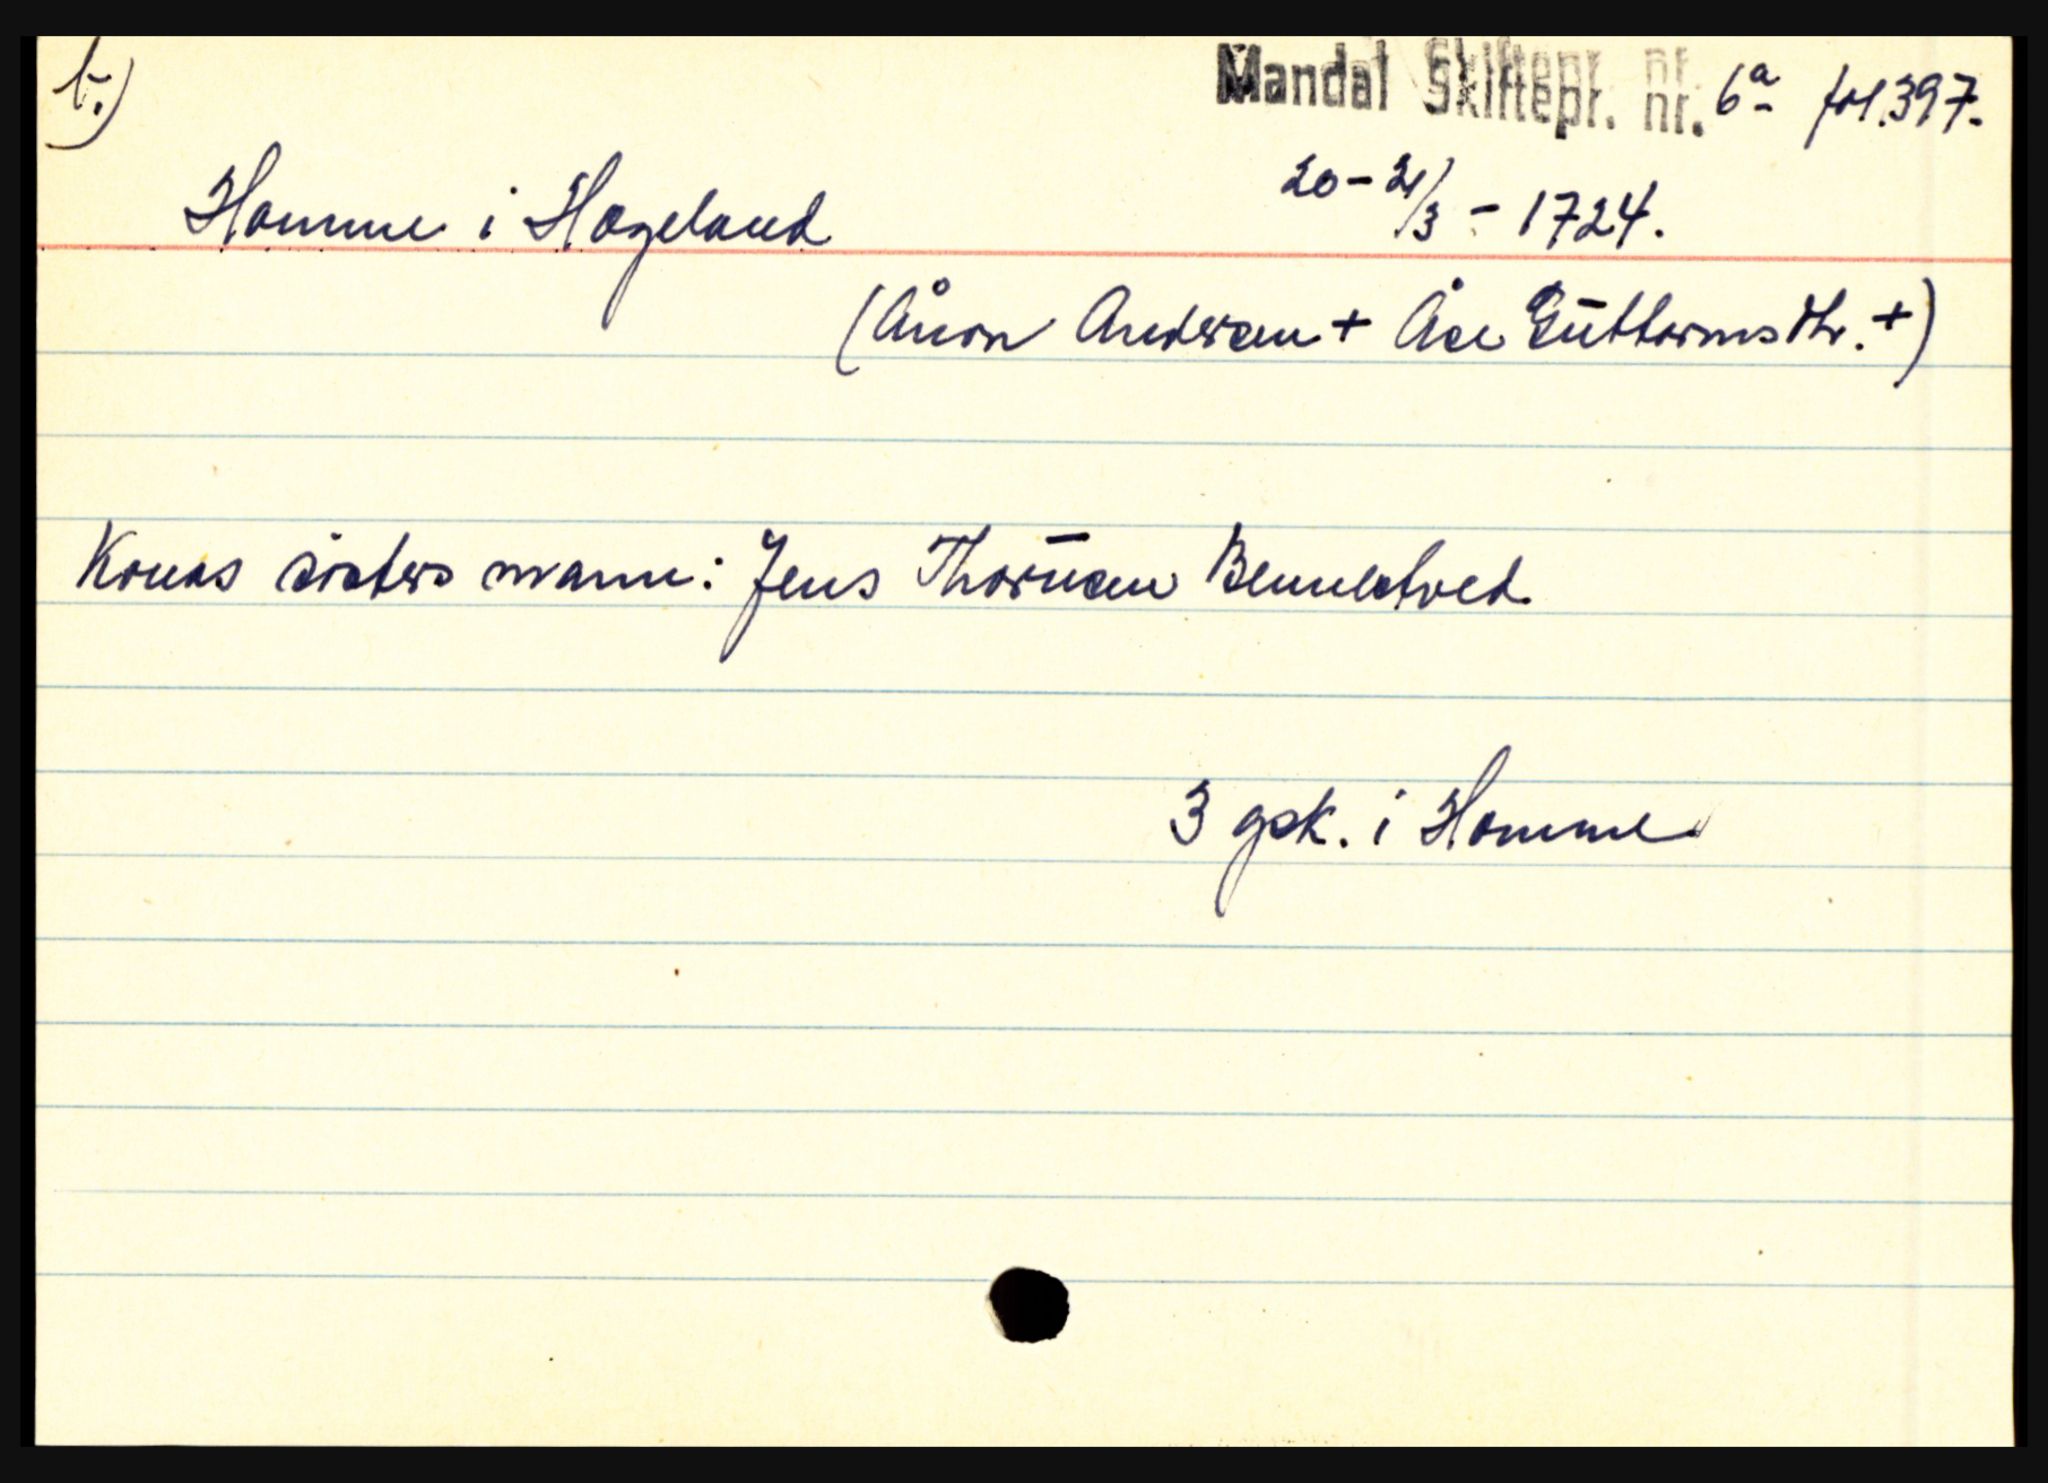 b.)
Mandal Skiftepr. nr. 6a fol. 397.
Homme i Hægeland 20-21/3 - 1724.
(Ånon Andersen + Åse Guttormsdtr. +)
Konas søsters mann: Jens Thorusen
3 gsk. i Homme